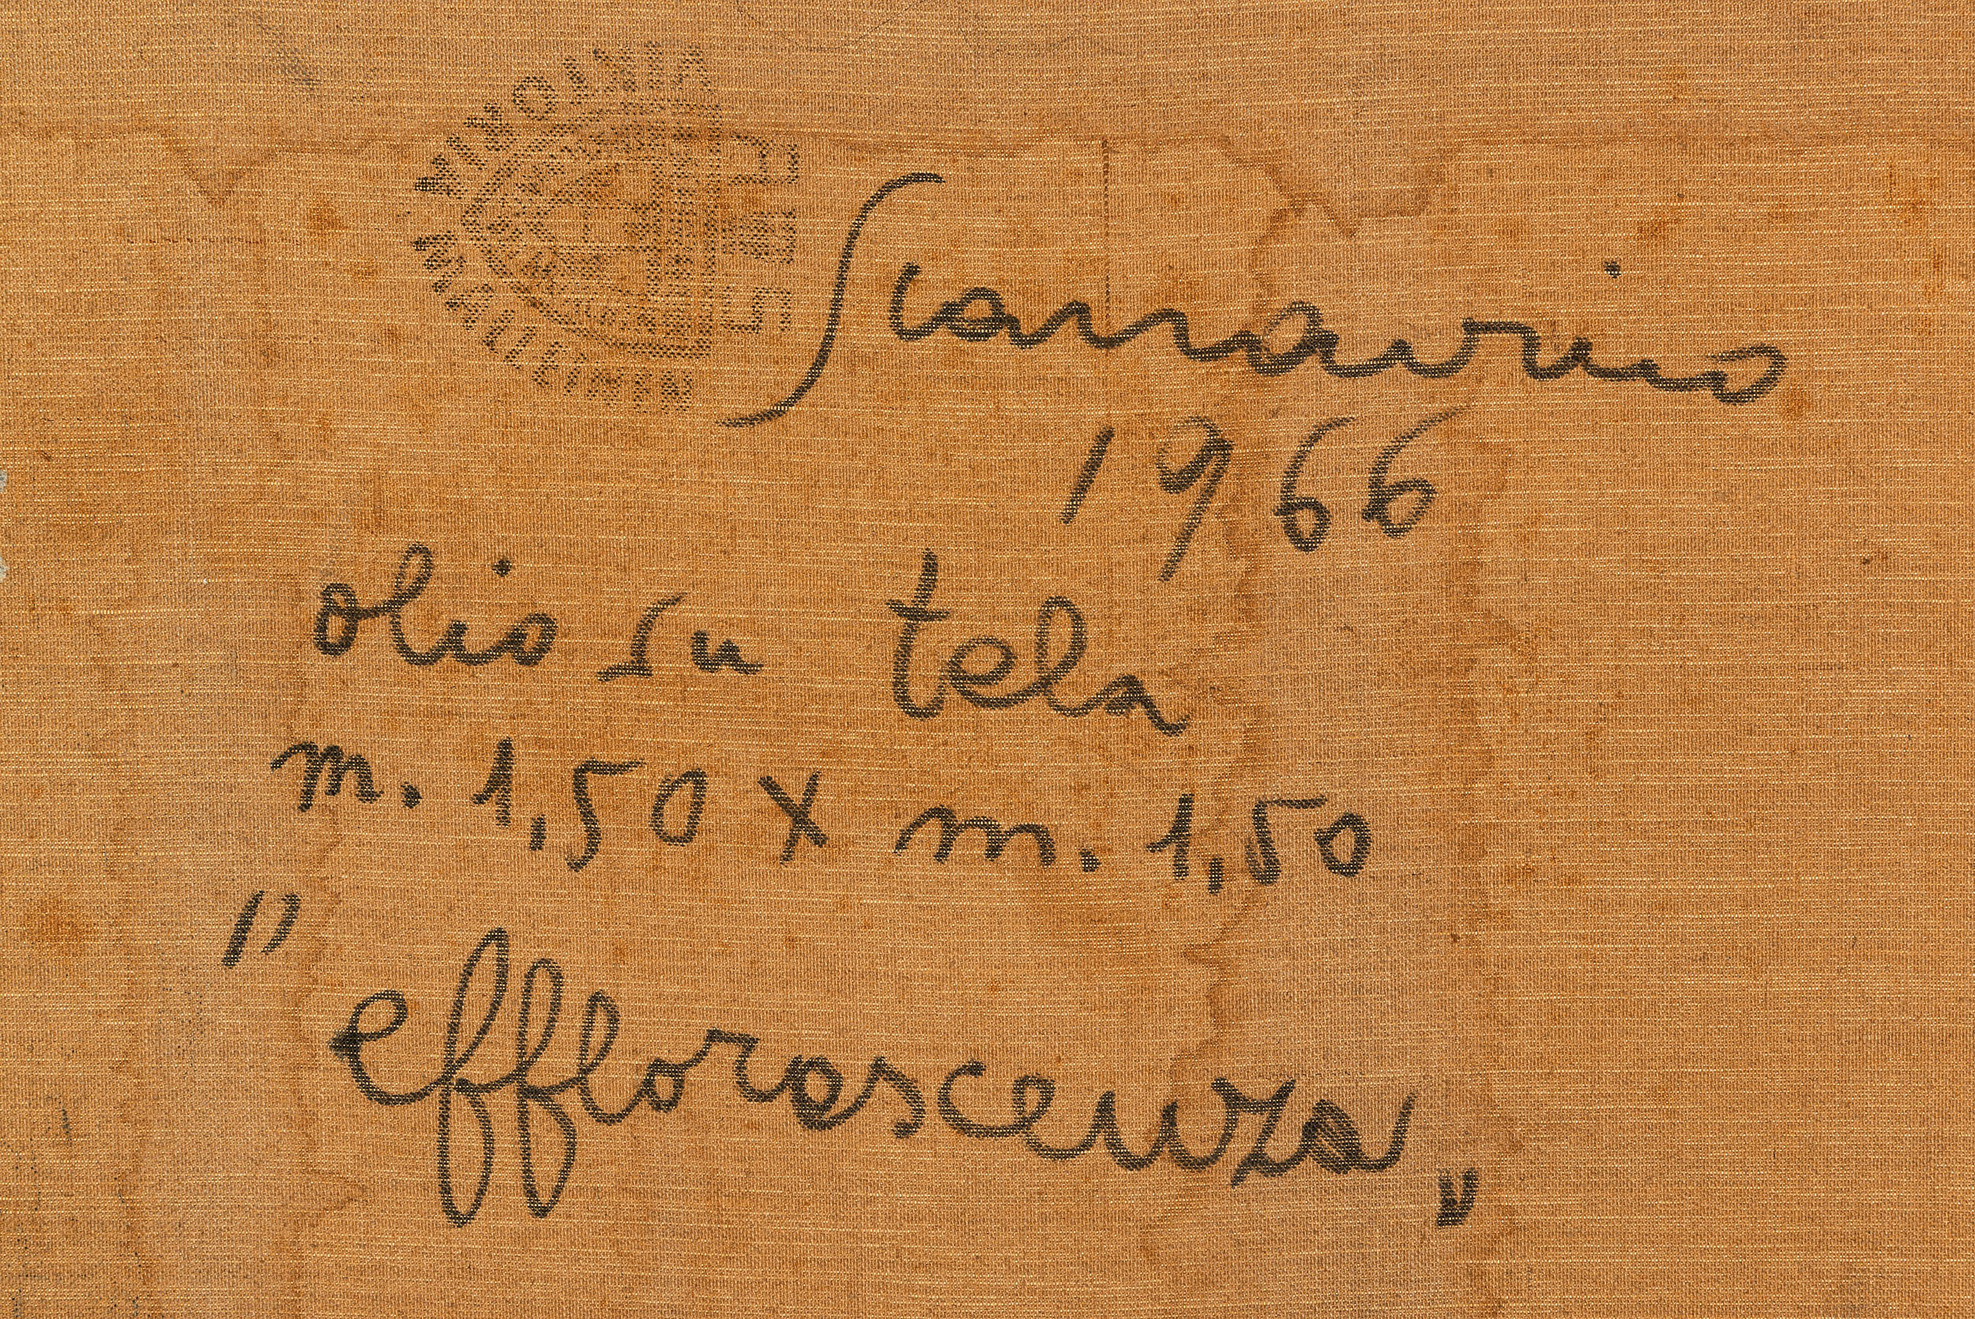 VIKTORIA MALLEINEN
Scanavino
1966
olio su tela
m. 1,50 x m. 1,50
"efflorescenza"